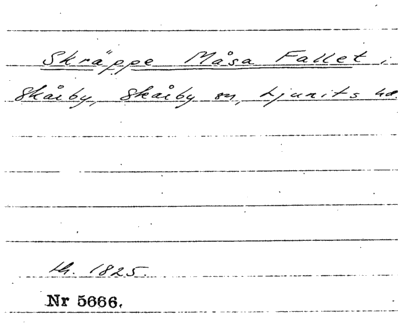 Skräppe Måsa Fallet i
Skårby, Skårby sn, Ljunits hd
th. 1825.
Nr 5666.